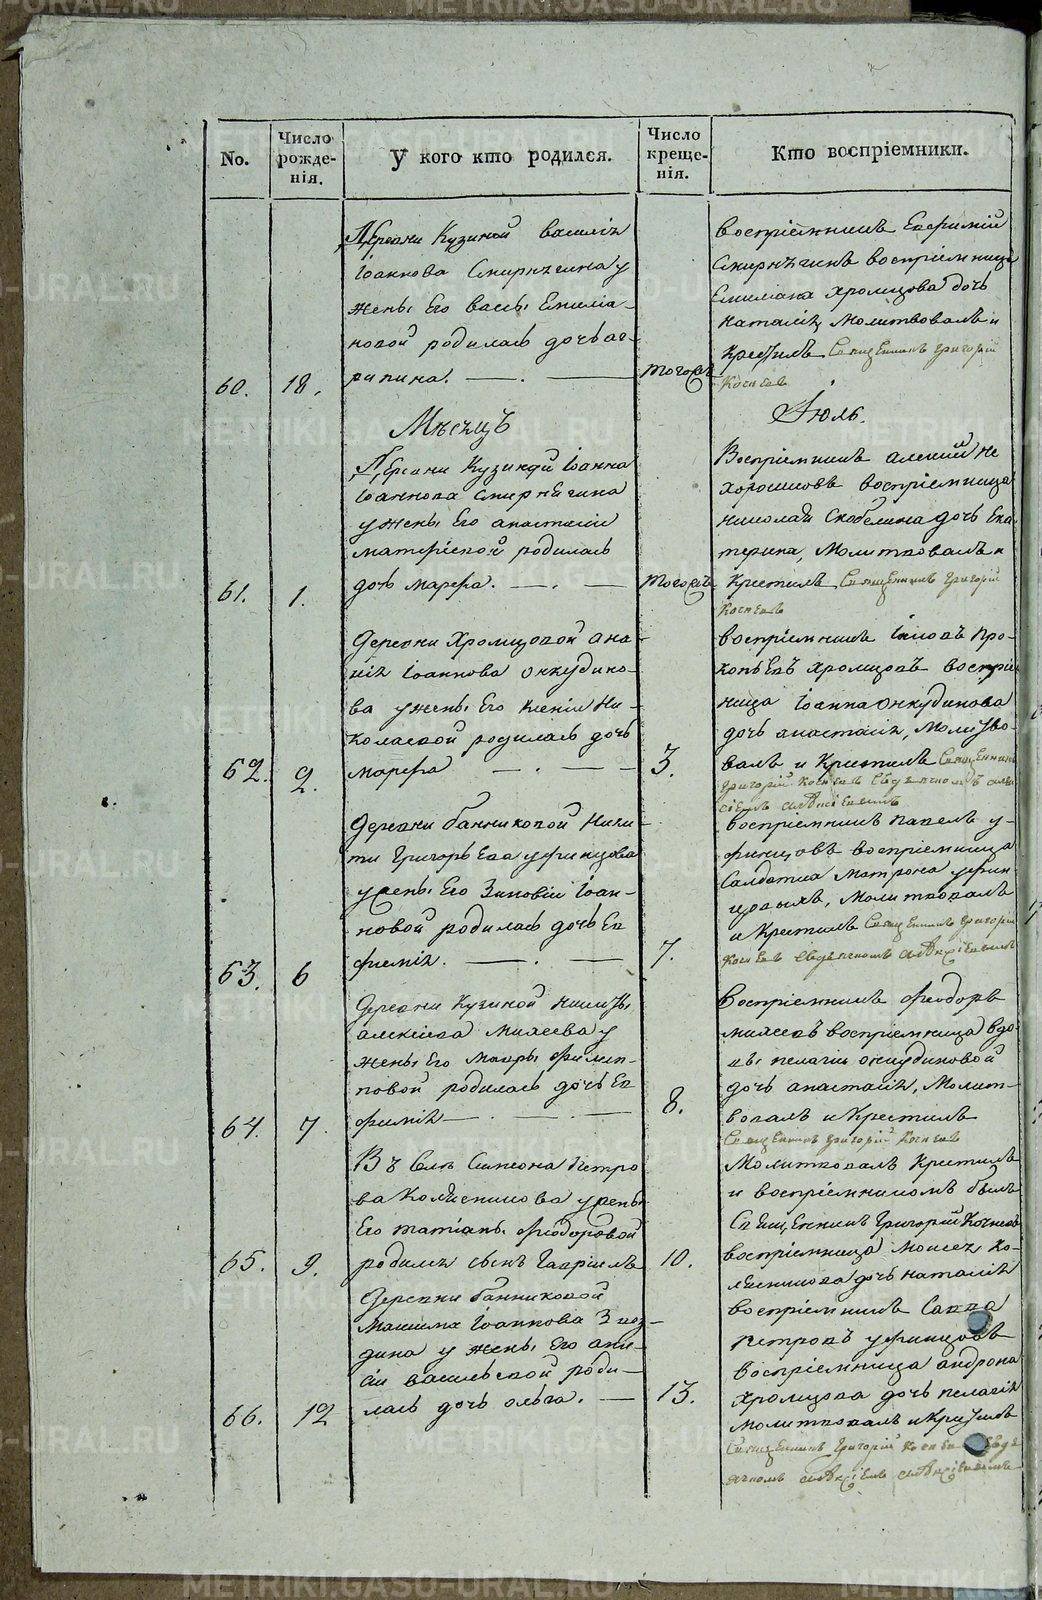 No.
Число рожде-нія.
У кого кто родился.
Число креще-нія.
Кто воспріемники.
Деревни Кузиной василія
Іоаннова Смирнягина у
жены Его вассы Емиліа-
новой родилась дочь аг-
рипина.
60.
18.
тогожъ
воспріемникъ Евфимій
Смирнягинъ воспріемница
Емиліана хромцова дочь
наталія, Молитвовалъ и
крестилъ Священникъ Григорій
Мѣсяцъ
Іюль.
Деревни Кузиной Іоанна
Іоаннова Смирнягина
у жены Его анастасіи
родилась
дочь марфа.
61.
1.
тогожъ
Воспріемникъ алексій не
хорошковъ воспріемница
николая Скобелина дочь Ека
терина, Молитвовалъ и
Крестилъ Священникъ Григорій
Деревни Хромцовой ана
нія Іоаннова Онкудино-
ва у жены Его Ксеніи Ни-
колаевой родилась дочь
марфа
62.
2.
3.
воспріемникъ Іаковъ Про-
копьевъ хромцовъ воспріе
ница Іоанна Онкудинова
дочь анастасія, Молитво-
валъ и Крестилъ Священникъ
Деревни банниковой Ники-
ты Григорьева уфинцова
у жены Его Зиновіи Іоан-
новой родилась дочь Ев
фимія.
63.
6
7.
воспріемникъ павелъ у-
финцовъ воспріемница
Салдатка матрона уфин
цовыхъ, Молитвовалъ
и Крестилъ Священникъ Григорій
Деревни Кузиной Никиты
алексіева Михеева у
жены Его Мавры филип-
повой родилась дочь Ев
фимія
64.
7.
8.
Воспріемникъ феодоръ
михеевъ воспріемница вдо-
вы пелагіи онкудиновой
дочь анастасія, Молит-
вовалъ и Крестилъ
Священникъ Григорій
Въ Селѣ Симеона Петро
ва у жены
Его татіаны Феодоровой
родился сынъ Гавріилъ
65.
9.
10.
Молитвовалъ Крестилъ
и воспріемникомъ былъ
Священникъ Григорій
воспріемница Моисея Ко-
дочь наталія
Деревни банниковой
Максима Іоаннова
у жены Его ани-
сіи васильевой роди-
лась дочь ольга.
66.
12
13.
воспріемникъ Савва
петровъ уфинцовъ
воспріемница андрона
Хромцова дочь пелагія
Молитвовалъ и Крестилъ
Священникъ Григорій
METRIKI.GASO-URAL.RU